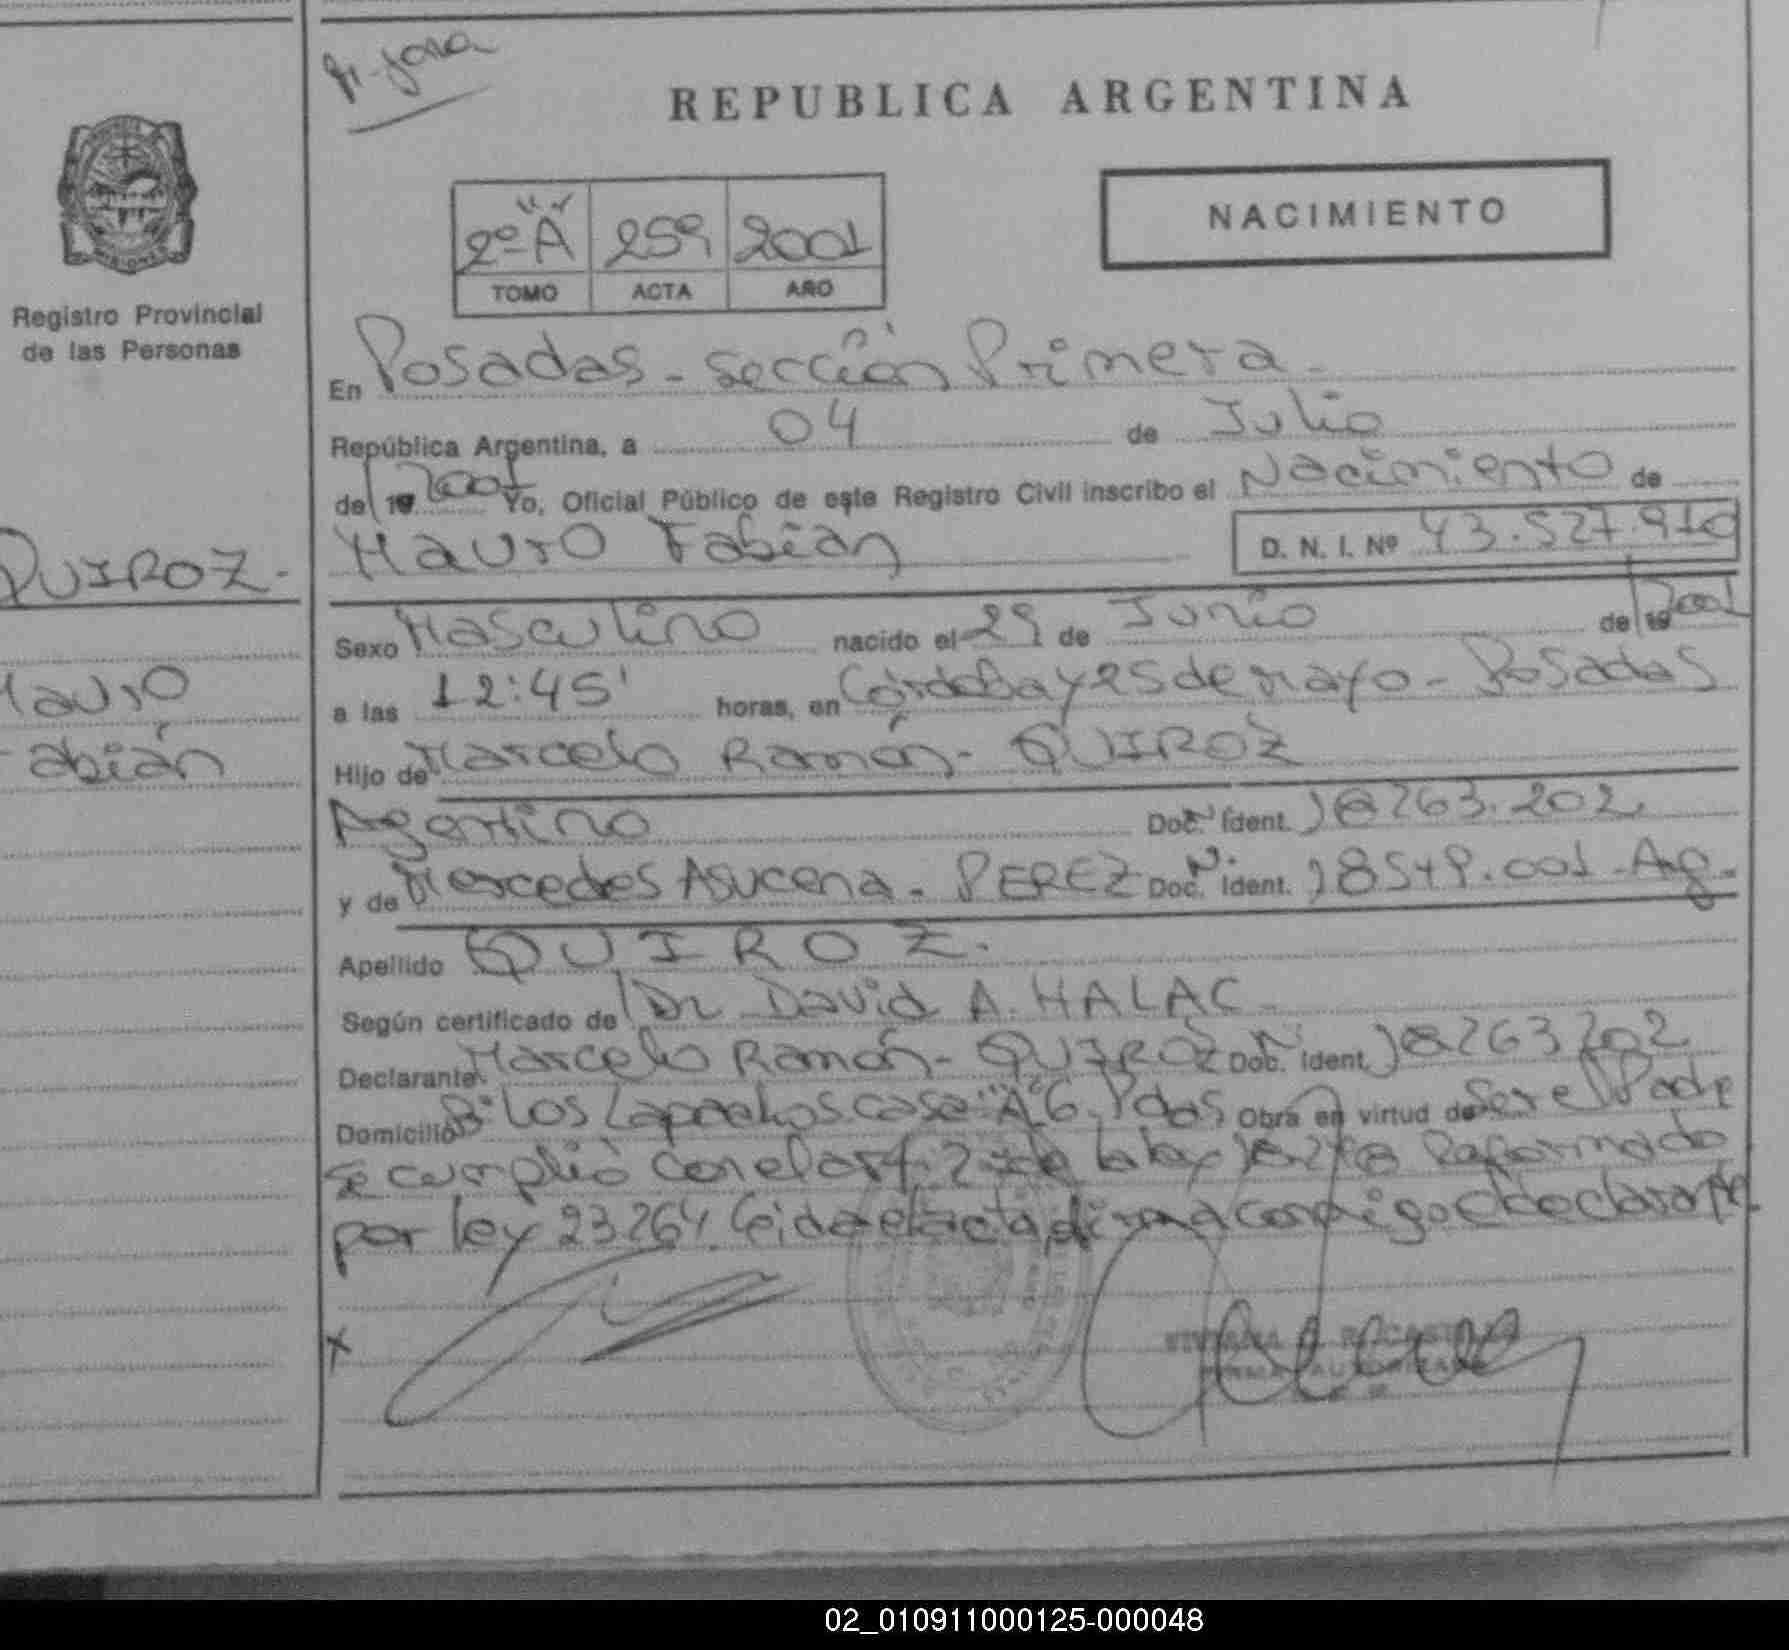 REPUBLICA ARGENTINA
NACIMIENTO
2º "A" 259 2001
TOMO ACTA AÑO
Registro Provincial
de las Personas
En Posadas - Sección Primera -
República Argentina, a 04 de Julio
de 19 2001 Yo, Oficial Público de este Registro Civil inscribo el Nacimiento de
Mauro Fabián D. N. I. Nº 43.527.910
QUIROZ -
Sexo Masculino nacido el 29 de Junio de 19 2001
Mauro
a las 12:45' horas, en Córdoba y 25 de Mayo - Posadas
Fabián
Hijo de Marcelo Ramón - QUIROZ
Argentino Doc. Ident.
y de Mercedes Asucena - PEREZ Doc. Ident. Arg -
Apellido QUIROZ -
Según certificado de Dr David A. HALAC -
Declarante Marcelo Ramón - QUIROZ Doc. Ident.
Domicilio Bº Los Lapachos casa "A" 6 Pdas Obra en virtud de Ser el Padre
Se cumplió con el art. de la ley Reformado
por ley 23264. Leida el acta firma conmigo el declarante.
X
02_010911000125-000048